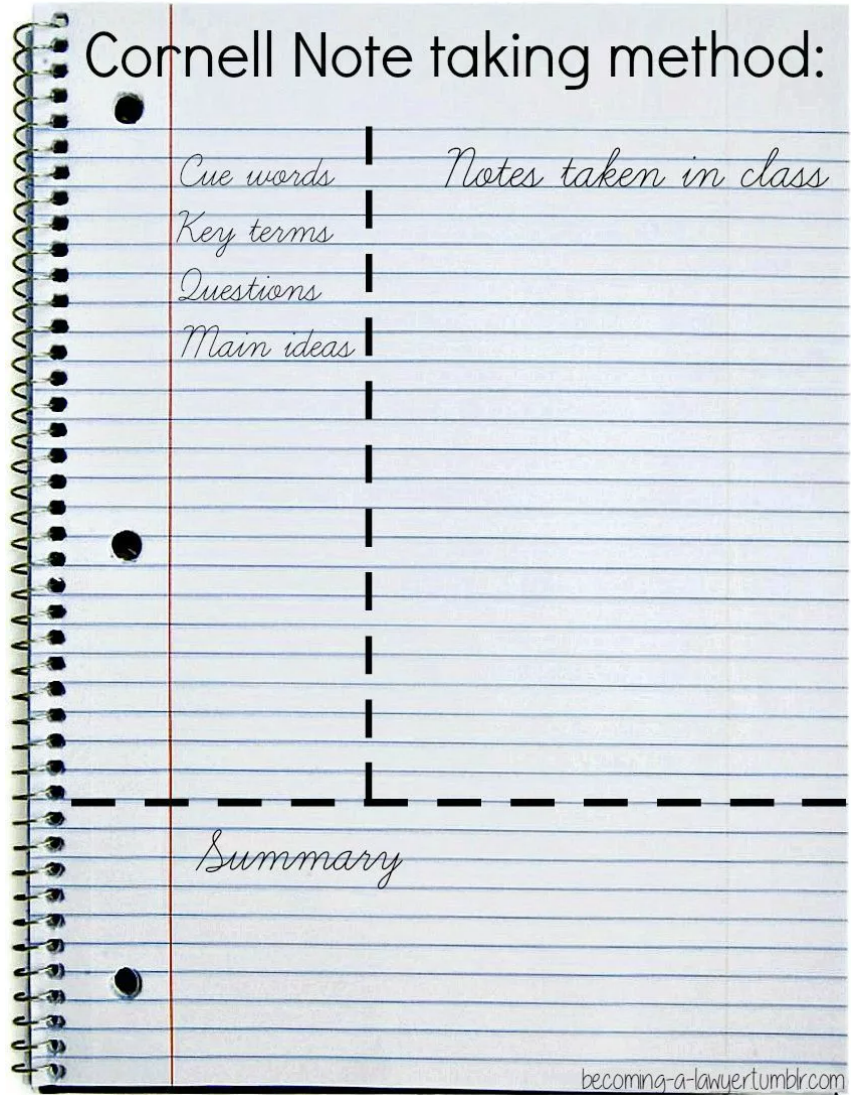 Cornell Note taking method:
Cue words
Key terms
Questions
Main ideas
Notes taken in class
Summary
becoming-a-lawyer.tumblr.com